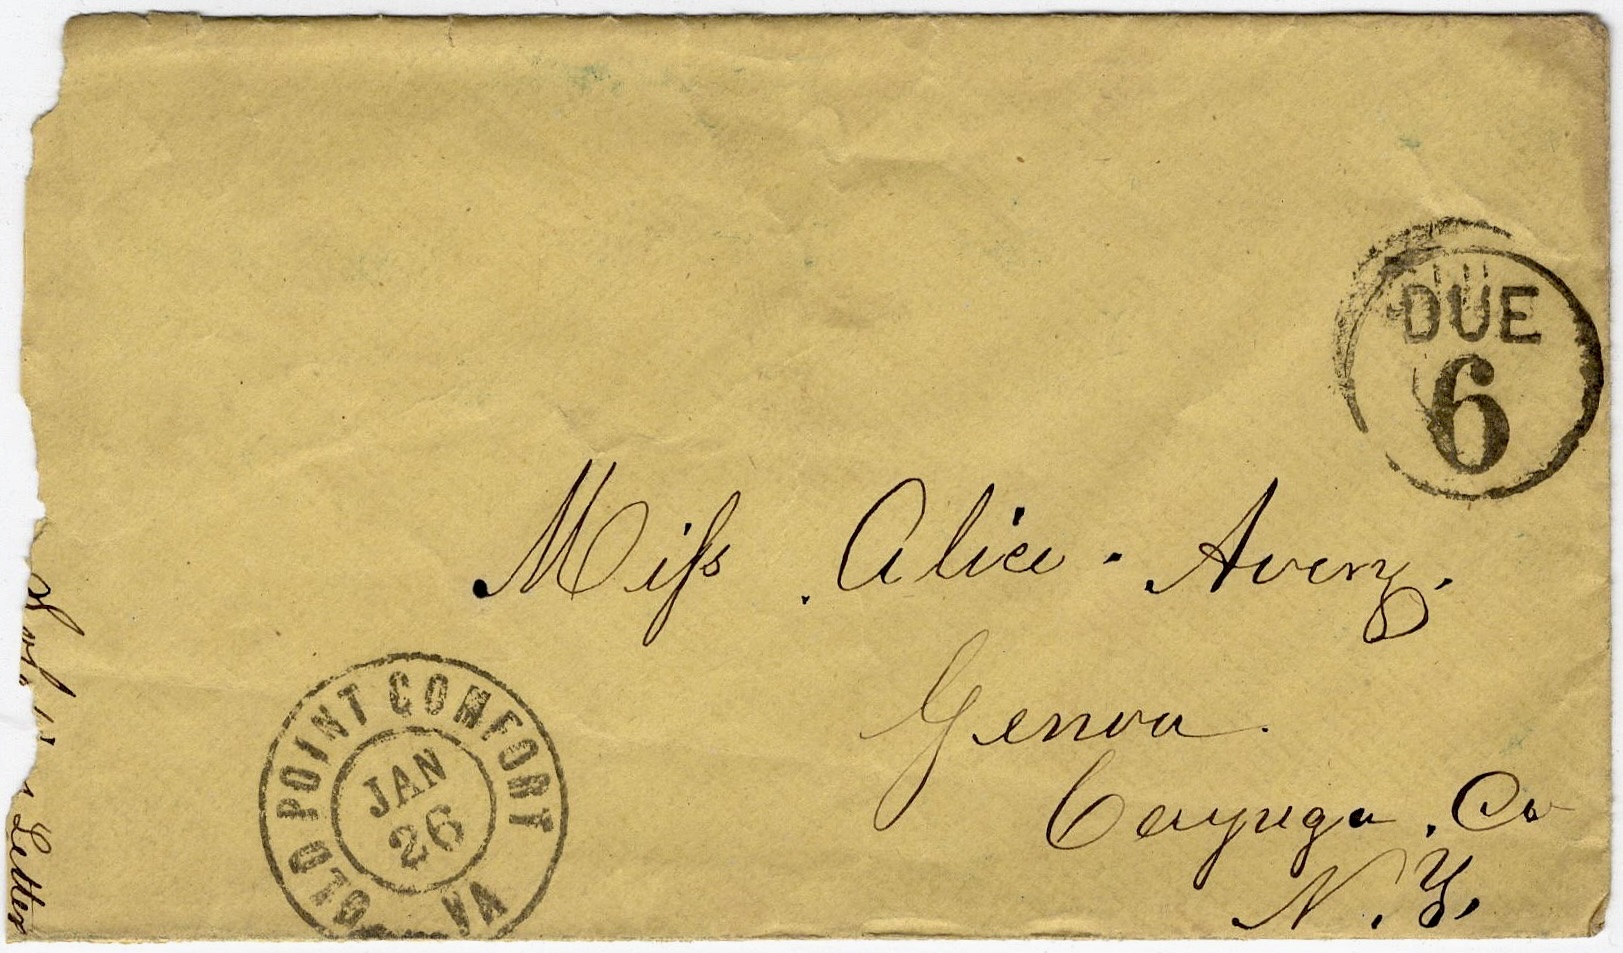 DUE
6
Miss Alice Avery.
Genoa.
Cayuga. Co
N.Y.
OLD POINT COMFORT VA
JAN
26
Letter